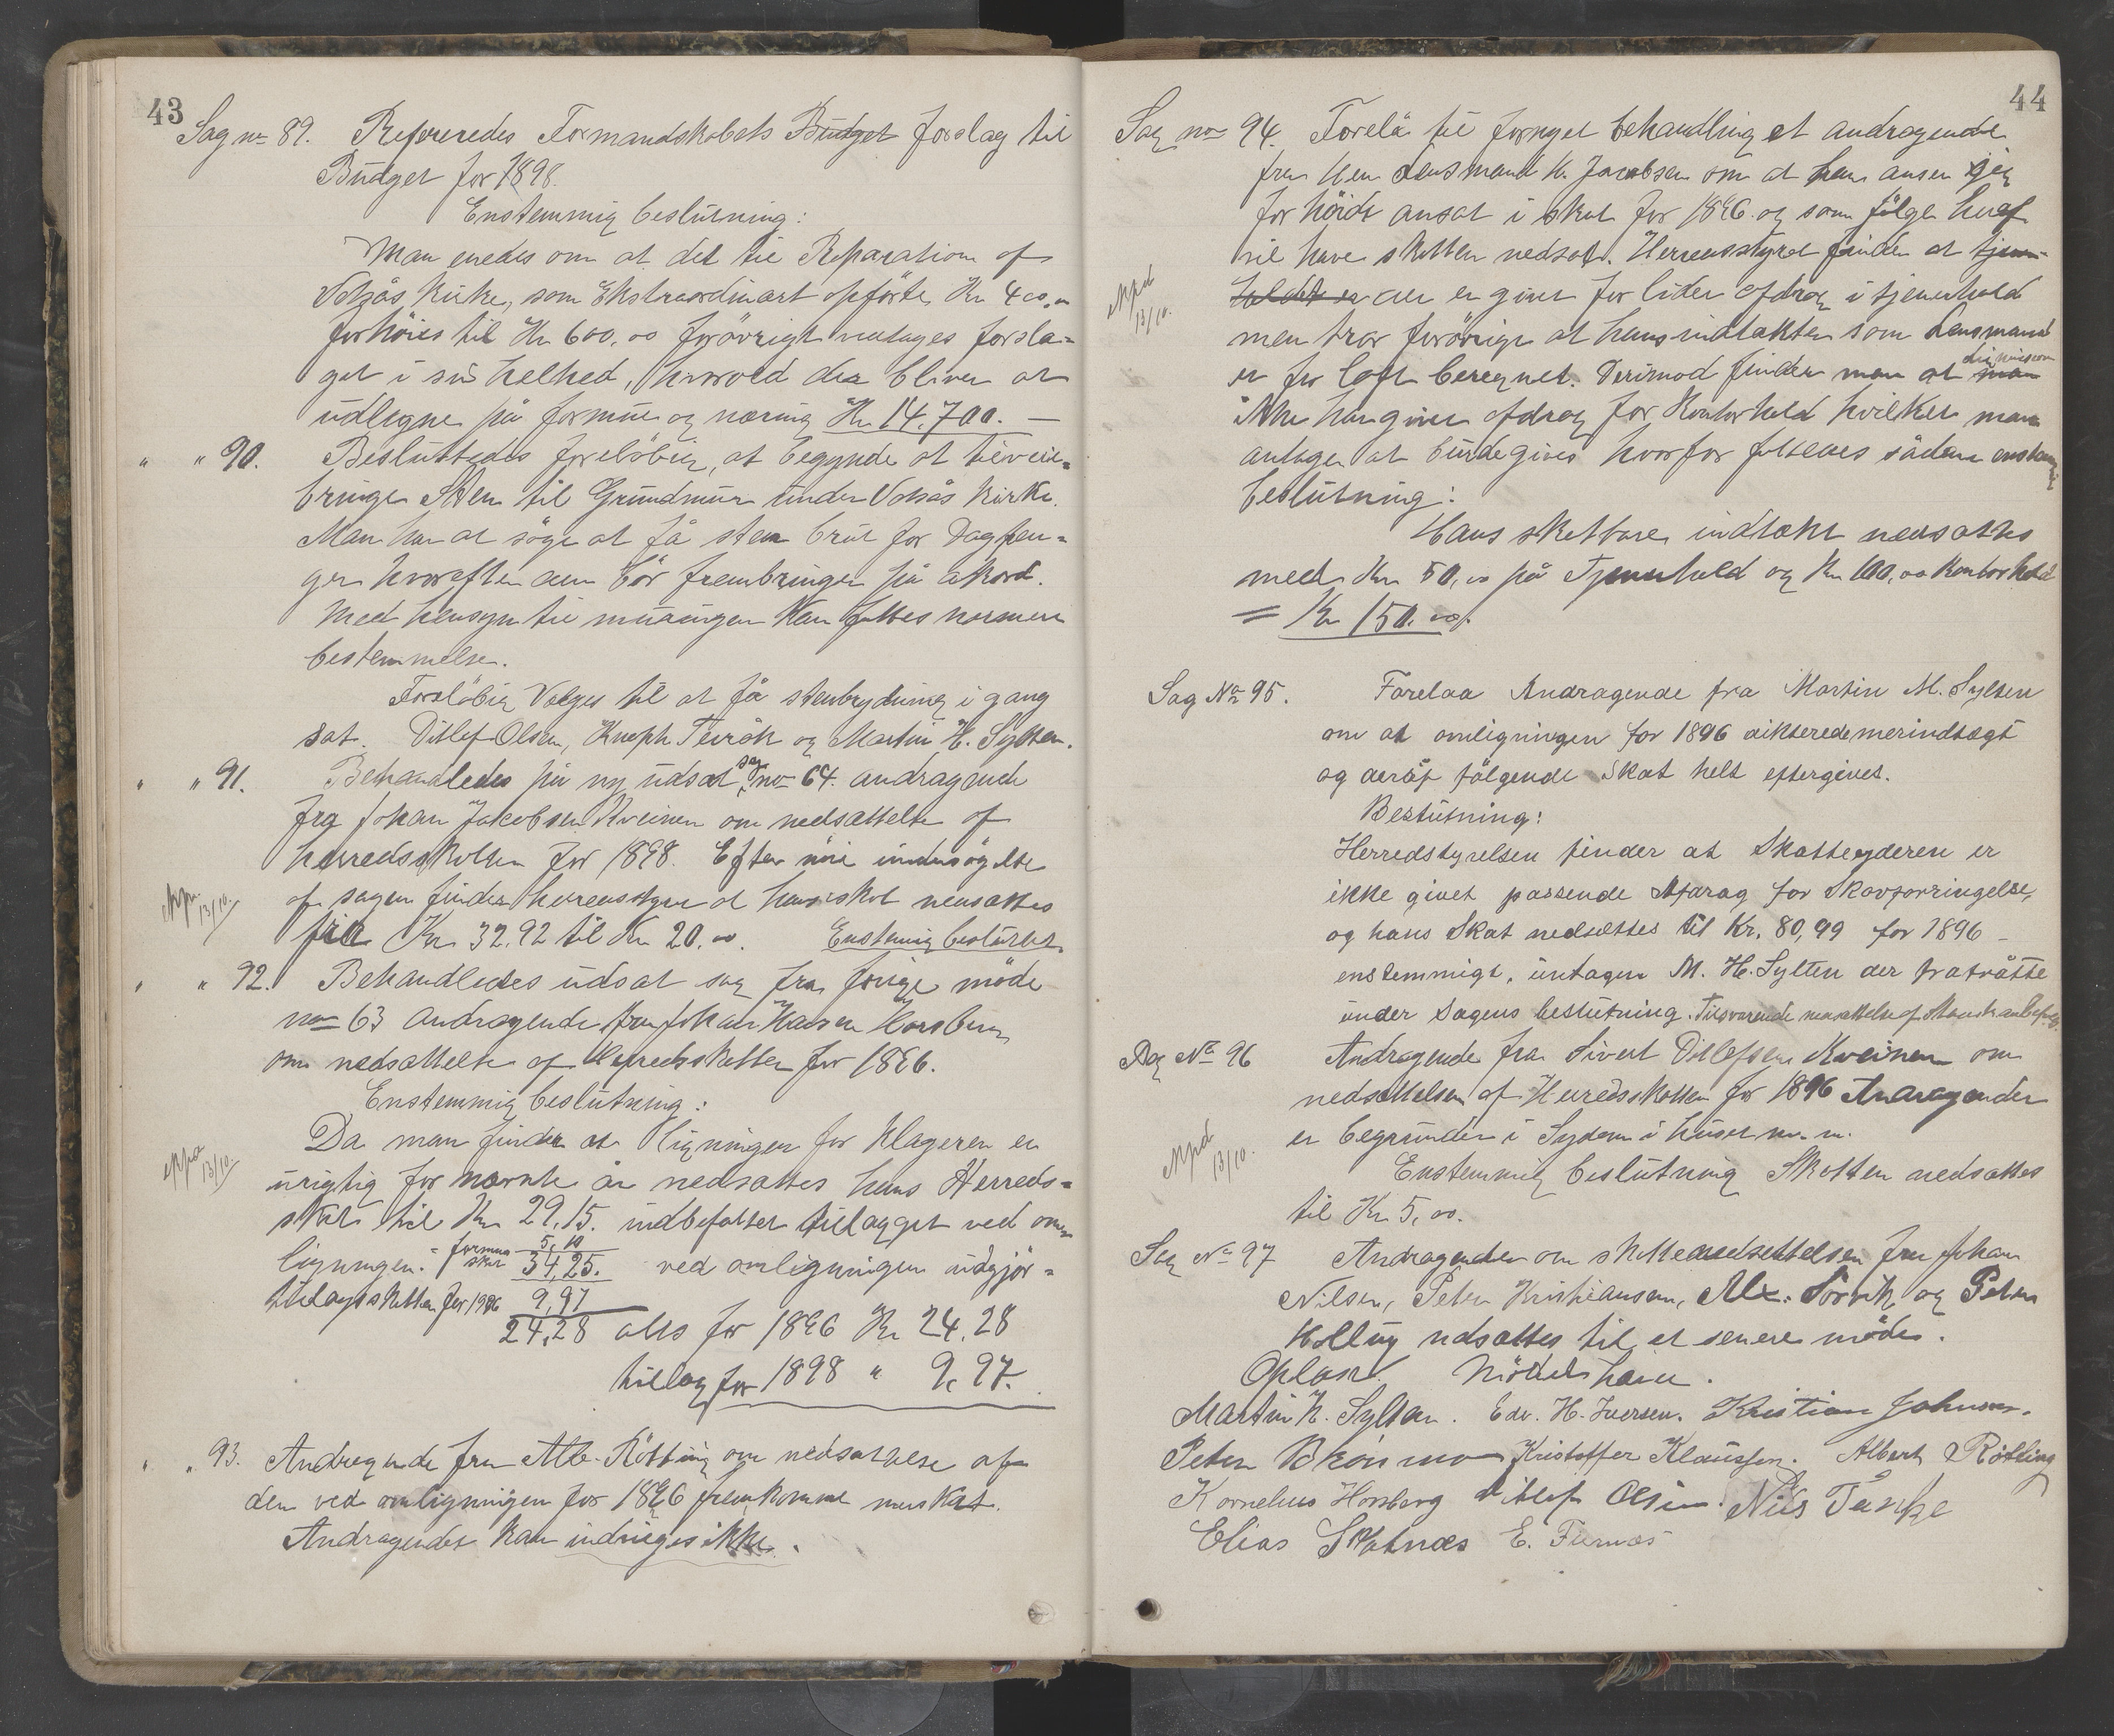 43
Sag no 89. Refereredes Formandskabets Budget forslag til
Budget for 1898.
Enstemmig beslutning:
Man enedes om at det til Reparation af
Volsås Kirke, som Ekstraordinært opførte Kr 400,00
forhöies til Kr 600,00 forøvrigt vedtages forsla-
get i sin helhed, hvorved der bliver at
udligne på formue og næring Kr 14,700. —
" " 90. Besluttedes foreløbig, at begynde at tilveie-
bringe Sten til Grundmur under Volsås Kirke.
Man har at søge at få sten brut for Dagpen-
ger hvorefter den bör frembringes på akord.
Med hensyn til muringen kan fattes nærmere
bestemmelse.
Foreløbig Valges til at få stenbrydning i gang
sat. Ditlef Olsen, og Martin H. Sylten.
" " 91. Behandledes på ny udsat sag no 64. andragende
fra Johan Jakobsen Kveinen om nedsættelse af
herredsskatten for 1898. Efter nöie undersøgelse
af sagen finder herredsstyret at hans skat nedsættes
fra Kr 32.92 til Kr 20.00. Enstemig besluttet
13/10.
" " 92. Behandledes udsat sag fra forige møde
no 63 andragende fra Johan Hansen Horsberg
om nedsættelse af Herredsskatten for 1896.
Enstemmig beslutning:
Da man finder at ligningen for Klageren er
urigtig for nævnte år nedsattes hans Herreds-
skat til Kr 29,15. indbefattet tillægget ved om-
ligningen. formue skat 5,10
34,25. ved omligningen udgjör-
tillægsskatten for 1896 9,97
24,28 alts for 1896 Kr 24,28
tillæg for 1898 " 9,97.
13/10.
" " 93. Andragende fra Alb. Røtting om nedsættelse af
den ved omligningen for 1896 fremkomne merskat.
Andragendet kan indviges ikke.
44
Sag no 94. Forelå til fornyet behandling et andragende
fra Herr Lensmand H. Jacobsen om at han anser sig
for høit ansat i skat for 1896 og som følge heraf
vil have skatten nedsat. Herredsstyret finder at tjener-
holdet er der er givet for lidet afdrag i tjenerhold
men tror forøvrigt at hans indtækter som Lensmand
er for lavt beregnet. Derimod finder man at man ligningen
ikke har givet afdrag for Kontorhold hvilket man
antager at burde gives hvorfor fattedes sådan enstemmig
beslutning:
Hans skatbare indtækt nedsættes
med Kr 50,00 på Tjenerhold og Kr 100,00 Kontorhold
= Kr 150.00.
13/10.
Sag No 95. Forelaa Andragende fra Martin M. Sylten
om at omligningen for 1896 dikterede merindtægt
og deraf følgende Skat helt eftergives.
Beslutning:
Herredstyrelsen finder at Skatteyderen er
ikke givet passende Afdrag for Skovforringelse,
og hans Skat nedsættes til Kr. 80,99 for 1896 –
enstemmigt, untagen M. H. Sylten der fratråtte
under Sagens beslutning. Tilsvarende nedsættelse af
Sag No 96 Andragende fra Sivert Ditlefsen Kveinen om
nedsættelsen af Herredsskatten for 1896 Andragendet
er begrundet i Sygdom i huset m. m.
Enstemmig beslutning Skatten nedsættes
til Kr 5,00.
13/10.
Sag No 97 Andragender om skattenedsettelsen fra Johan
Nilsen, Peter Kristiansen, Alex. Forvik og Peter
Hollug udsættes til et senere möde.
Oplæst. Mödet hævet.
Martin H. Sylten. Edv. H. Iversen. Kristian Johnsen.
Peter Kristoffer Klaussen. Albert Røtting
Kornelius Horsberg Ditlef Olsen. Nils
Elias Skotnæs E. Fürnæs